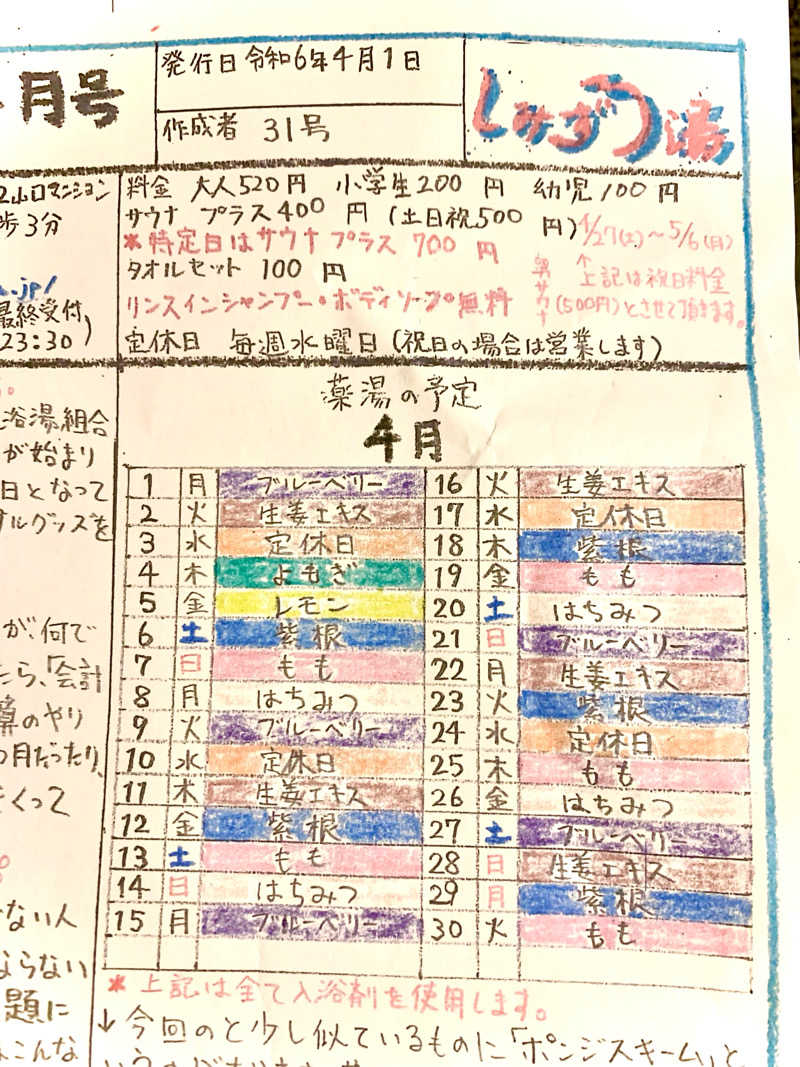 月号
発行日 令和6年4月1日
作成者 31号
しみずゆ湯
山口マンション
歩3分
.jp/
最終受付
23:30)
料金 大人520円 小学生200円 幼児100円
サウナ プラス400円(土日祝500円)
*特定日はサウナプラス 700円
タオルセット 100円
リンスインシャンプー・ボディソープ無料
定休日 毎週水曜日(祝日の場合は営業します)
4/27(土)〜5/6(月)
↑
上記は祝日料金
(500円)とさせて頂きます。
男サウナ
浴湯組合
が始まり
日となって
ルグッズを
が、何で
たら、「会計
算のやり
月だったり、
くって
ない人
ならない
題に
こんな
薬湯の予定
4月
1 月 ブルーベリー
2 火 生姜エキス
3 水 定休日
4 木 よもぎ
5 金 レモン
6 土 紫根
7 日 もも
8 月 はちみつ
9 火 ブルーベリー
10 水 定休日
11 木 生姜エキス
12 金 紫根
13 土 もも
14 日 はちみつ
15 月 ブルーベリー
16 火 生姜エキス
17 水 定休日
18 木 紫根
19 金 もも
20 土 はちみつ
21 日 ブルーベリー
22 月 生姜エキス
23 火 紫根
24 水 定休日
25 木 もも
26 金 はちみつ
27 土 ブルーベリー
28 日 生姜エキス
29 月 紫根
30 火 もも
*上記は全て入浴剤を使用します。
↓今回のと少し似ているものに「ポンジスキーム」と